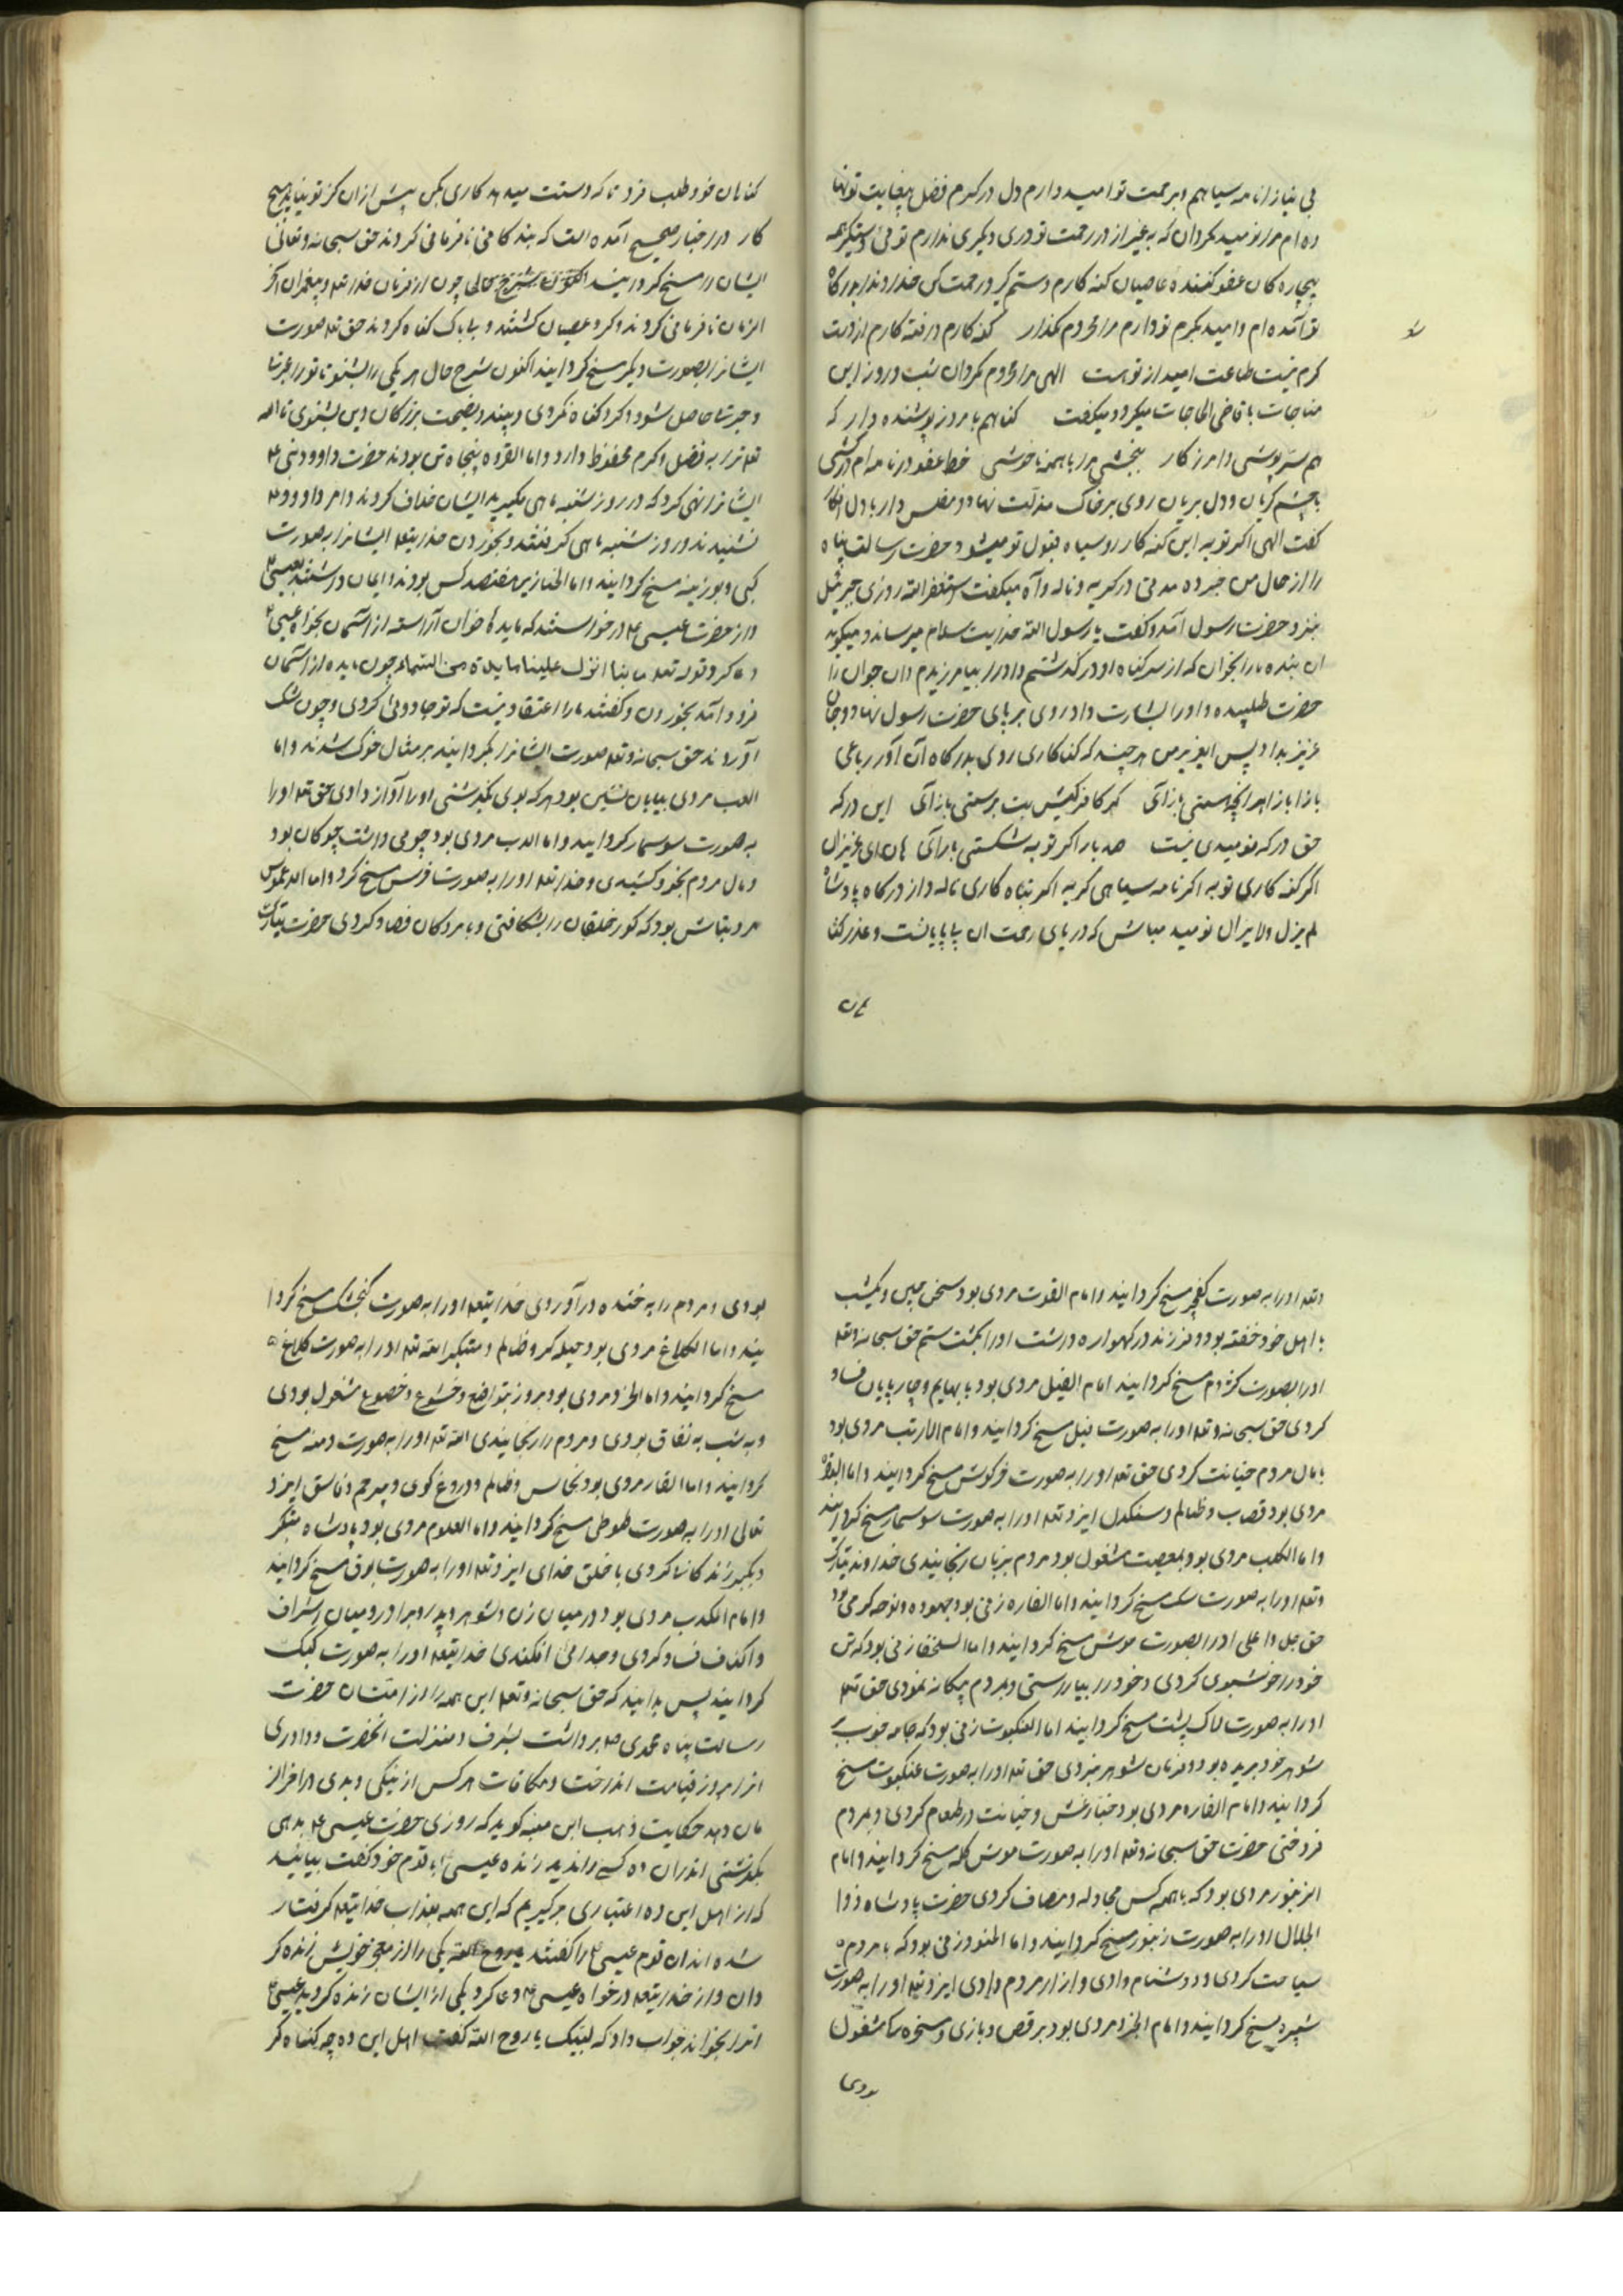 بی نیاز از نامه سیاهم و برحمت تو امید دارم دل در کرم فضل بیغایت تو نها
ده ام مرا نومید مکردان که بغیر از در رحمت تو دری دیکری ندارم توئی دستکیر همه
بیچاره کان عفو کننده عاصیان کنه کارم دستم کیر و رحمت کن خداوندا بدرکاه
تو آمده ام و امید بکرم تو دارم مرا محروم مکذار کنه کارم و رفته کارم از دست
کرم نیست طاعت امید از تو هست الهی مرا محروم مکردان شب و روز این
مناجات با قاضی الحاجات میکرد و میکفت کناهم بامروز پوشنده دار که
هم سترپوشی و آمرزکار ببخشی مرا با همه ناخوشی خط عفو در نامه ام درکشی
با چشم کریان و دل بریان روی بر خاک مذلت نهاد و مفلس وار با دل افکار
کفت الهی اکر توبه این کنه کار رو سیاه قبول تو میشود حضرت رسالت پناه
را از حال من خبر ده مدتی در کریه و ناله و آه میکفت استغفر الله روزی جبرئیل
بنزد حضرت رسول آمد و کفت یا رسول الله خدایت سلام میرساند و میکوید
ان بنده ما را بخوان که از سر کناه او درکذشتم و او را بیامرزیدم و ان جوان را
حضرت طلبیده و او را بشارت داد و روی بر پای حضرت رسول نهاد و جان
عزیز بداد پس ای عزیز من هر چند که کناکاری روی بدرکاه آن آور رباعی
باز آ باز آ هر انچه هستی باز آی کر کافر کیش بت پرستی باز آی این درکه
حق درکه نومیدی نیست صد بار اکر توبه شکستی باز آی هان ای عزیز دل
اکر کنه کاری توبه اکر نامه سیاهی کریه اکر تباه کاری ناله و از درکاه پادشاه
لم یزل و لا یزال نومید مباش که دریای رحمت ان بی پایانست و عذر کنا
کنا
کناهان خود طلب فردا که دستت میدهد کاری بکن پیش از ان کز تو نیاید هیچ
کار در اخبار صحیح آمده است که بندکا می نافرمانی کردند حق سبحانه و تعالی
ایشان را مسخ کردانید چون از فرمان خدا تعه و پیغمبران آخر
الزمان نافرمانی کردند و کرد عصیان کشتند و بی باک کناه کردند حق تعه صورت
ایشانرا بصورت دیکر مسخ کردانید اکنون شرح حال هر یکی را بشنو تا تو را عبرتها
و حیرتها حاصل شود و کرد کناه نکردی و پند و نصیحت بزرکان دین بشنوی تا الله
تعه ترا به فضل و کرم محفوظ دارد و اما القرده پنجاه تن بودند حضرت داوود نبی ع
ایشانرا نهی کرد که در روز شنبه ماهی مکیرید ایشان خلاف کردند و امر داوود ع
نشنیدند و روز شنبه ماهی کرفتند و بخوردن خدایتعه ایشانرا به صورت
کپی و بوزینه مسخ کردانید و اما الخنازیر هفتصد کس بودند و ایمان داشتند بعیسی ع
و از حضرت عیسی ع درخواستند که مایده خوان آراسته از آسمان بخواه عیسی ع
دعا کرد قوله تعه ربنا انزل علینا مایدة من السماء چون مایده از آسمان
فرود آمد بخوردن و کفتند ما را اعتقاد نیست که تو جادویی کردی و چون شک
آوردند حق سبحانه و تعه صورت ایشانرا بکردانید بر مثال خوک شدند و اما
الضب مردی بیابان نشین بود هر که بوی بکذشتی او را آواز دادی حق تعه او را
به صورت سوسمار کردانید و اما الدب مردی بود چومی داشت چوکان بود
و مال مردم بخود کشیدی و خدا تعه او را به صورت خرس مسخ کرد و اما الدعموص
مرد نباش بود که کور خلقان را بشکافتی و با مردکان فساد کردی حضرت تبارک
و تعه او را به صورت کفچه مسخ کردانید و امام العقرب مردی بود سخن چین و یکشب
با اهل خود خفته بود و فرزند در کهواره داشت او را بکشت ستم حق سبحانه و تعه
او را بصورت کژدم مسخ کردانید امام الفیل مردی بود با بهایم و چارپایان فساد
کردی حق سبحانه و تعه او را به صورت فیل مسخ کردانید و امام الارنب مردی بود
با مال مردم خیانت کردی حق تعه او را به صورت خرکوش مسخ کردانید و اما
مردی بود قصاب و ظالم و سنکدل ایزد تعه او را به صورت سوسمار مسخ کردانید
و اما الکلب مردی بود بمعصیت مشغول بود مردم بزبان رنجانیدی خداوند تبارک
و تعه او را به صورت سک مسخ کردانید و اما الفاره زنی بود جهوده و نوحه کر می بود
حق جل و اعلی او را بصورت موش مسخ کردانید و اما السلحفا زنی بود که تن
خود را خوشبوی کردی و خود را بیاراستی و بمردم بیکانه نمودی حق تعه
او را به صورت لاک پشت مسخ کردانید اما العنکبوت زنی بود که جامه خوب
شوهر خود بریده بود و فرمان شوهر نبردی حق تعه او را به صورت عنکبوت مسخ
کردانید و امام الفاره مردی بود خباز غش و خیانت در طعام کردی و بمردم
فروختی حضرت حق سبحانه و تعه او را به صورت موش کله مسخ کردانید و امام
الزنبور مردی بود که با همه کس مجادله و مصاف کردی حضرت پادشاه ذوا
الجلال او را به صورت زنبور مسخ کردانید و اما زنی بود که با مردم
سیاحت کردی و دشنام دادی و ازار مردم دادی ایزد تعه او را به صورت
شپره مسخ کردانید و امام مردی بود برقص و بازی و مسخره کی مشغول
بودی
بودی و مردم را به خنده در آوردی خدایتعه او را به صورت کنجشک مسخ کردا
نید و اما الکلاغ مردی بود حیله کر و ظالم و متکبر الله تعه او را به صورت کلاغ
مسخ کردانید و اما مردی بود بروز بتواضع و خشوع و خضوع مشغول بودی
و به شب به نفاق بودی و مردم را رنجانیدی الله تعه او را به صورت مسخ
کردانید و اما الفار مردی بود نخاس و ظالم و دروغ کوی و بیرحم و فاسق ایزد
تعالی او را به صورت طوطی مسخ کردانید و اما مردی بود پادشاه متکبر
و کبر کردی با خلق خدای ایزد تعه او را به صورت مسخ کردانید
و امام مردی بود در میان زن و شوهر و پدر و برادر و میان اشراف
و اکناف فساد کردی و جدائی افکندی خدایتعه او را به صورت کبک
کردانید پس بدانید که حق سبحانه و تعه این همه را از امتان حضرت
رسالت پناه محمدی ص برداشت بشرف و منزلت انحضرت و داوری
انرا بروز قیامت انداخت و مکافات هر کس از نیکی و بدی
دهد حکایت وهب ابن منبه کوید که روزی حضرت عیسی ع بدهی
بکذشتی اندران ده کسی را ندید زنده عیسی ع با قوم خود کفت بیایید
که از اهل این ده اعتباری برکیریم که این همه بعذاب خدایتعه کرفتار
شده اند ان قوم عیسی ع را کفتند یا روح الله یکی را از معجز خویش زنده کر
دان و از خدایتعه درخواه عیسی ع دعا کرد یکی از ایشان زنده کردید عیسی ع
انرا بخواند جواب داد که لبیک یا روح الله کفت اهل این ده چه کناه کر